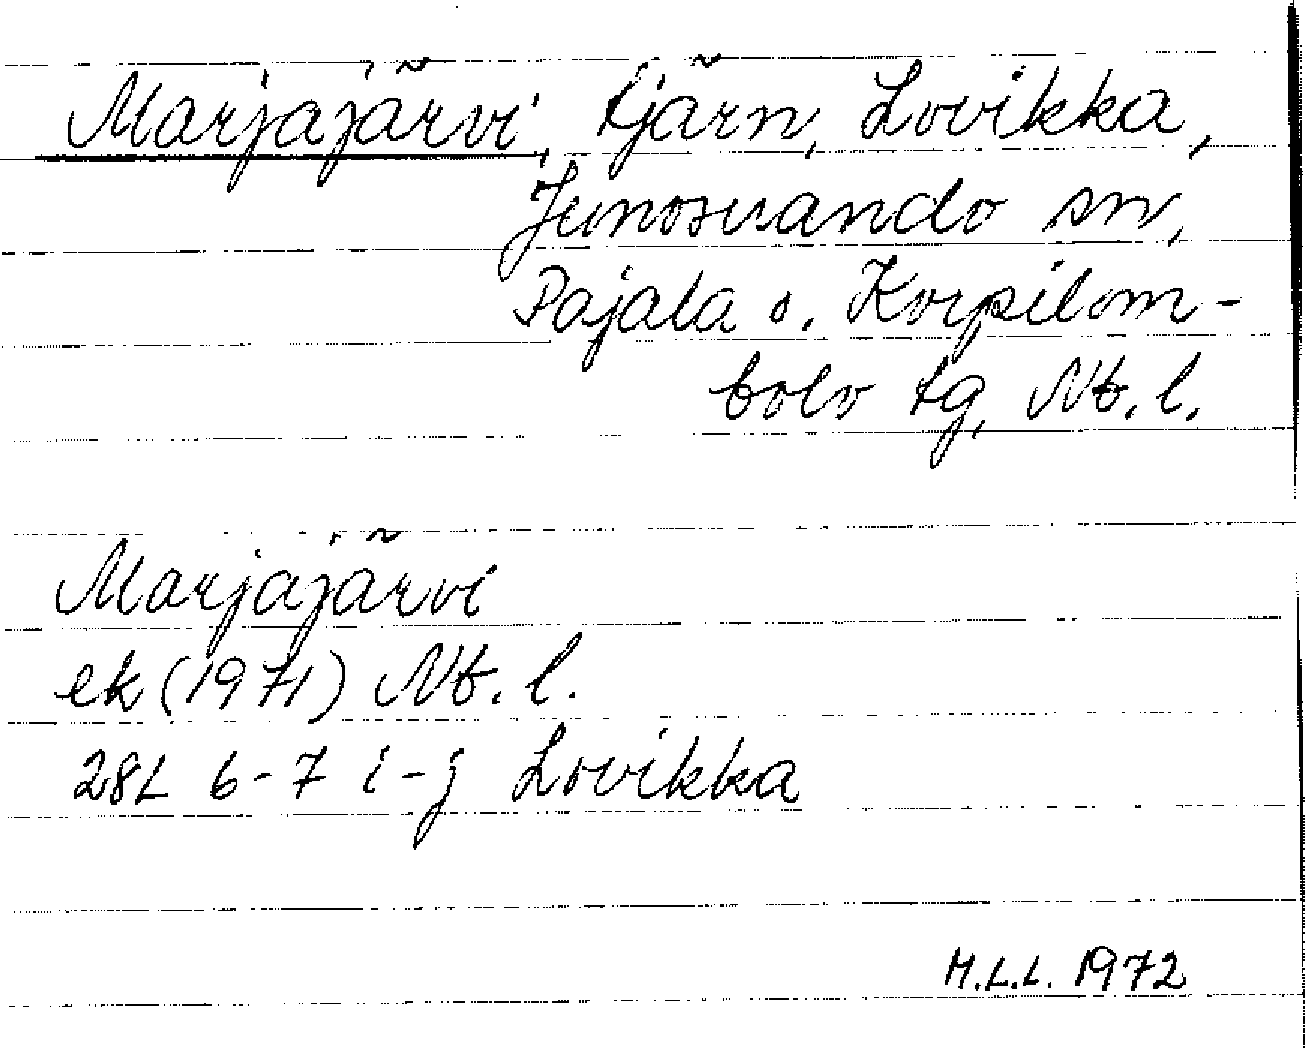 Marjajärvi, tjärn, Lovikka,
Junosuando sn,
Pajala o. Korpilom-
bolo tg, Nb. l.
Marjajärvi
ek (1971) Nb. l.
28L 6-7 i-j Lovikka
M.L.L. 1972